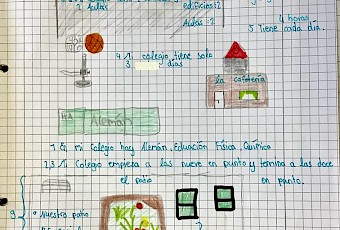 2 Aulas
edificios:2
Aulas = 2
4 horas
5 Tiene cada día.
4 Mi colegio tiene solo
3 días
la cafetería
HA Alemán
1 En mi Colegio hay Alemán, Educación Física, Química
2,3 Mi Colegio empieza a las nueve en punto y termina a las doce
en punto.
el patio
9
Nuestro patio
2